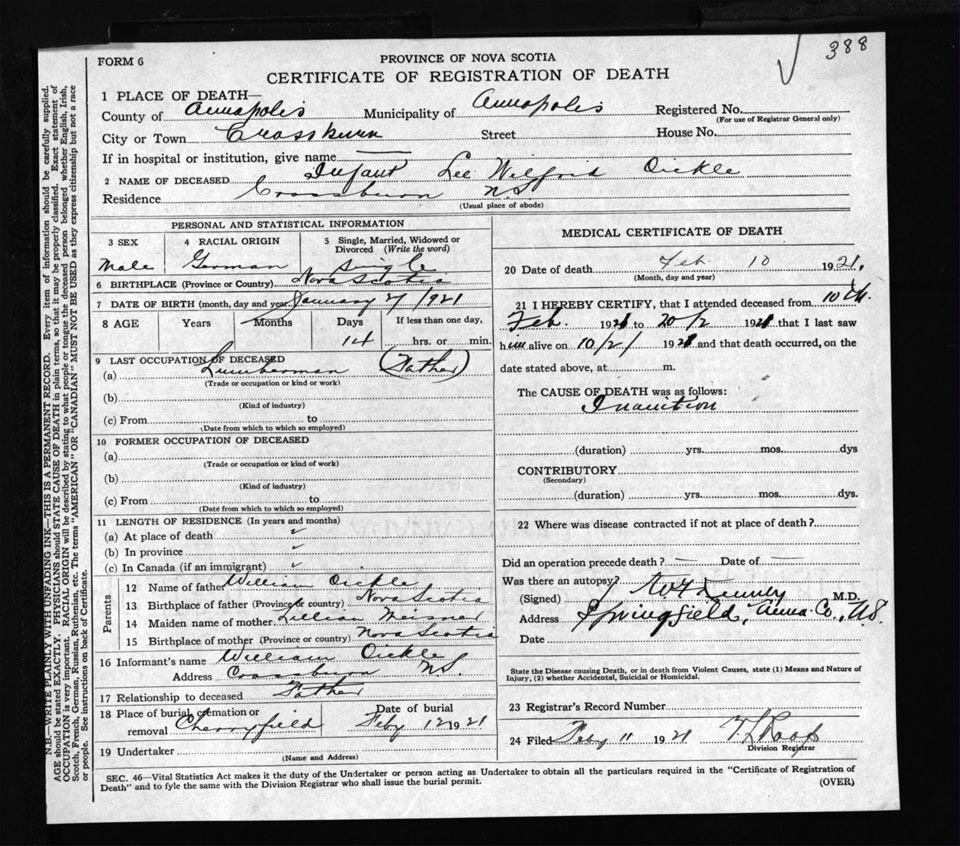 388
FORM 6
PROVINCE OF NOVA SCOTIA
CERTIFICATE OF REGISTRATION OF DEATH
1 PLACE OF DEATH—
County of Annapolis Municipality of Annapolis Registered No.
(For use of Registrar General only)
City or Town Crossburn Street House No.
If in hospital or institution, give name
2 NAME OF DECEASED Infant Lee Wilfrid Oickle
Residence Crossburn N.S.
(Usual place of abode)
PERSONAL AND STATISTICAL INFORMATION
3 SEX 4 RACIAL ORIGIN 5 Single, Married, Widowed or Divorced (Write the word)
Male German Single
6 BIRTHPLACE (Province or Country) Nova Scotia
7 DATE OF BIRTH (month, day and year) January 27 1921
8 AGE Years Months Days If less than one day,
14 hrs. or min.
9 LAST OCCUPATION OF DECEASED
(a) Lumberman (Father)
(Trade or occupation or kind or work)
(b)
(Kind of industry)
(c) From to
(Date from which to which so employed)
10 FORMER OCCUPATION OF DECEASED
(a)
(Trade or occupation or kind of work)
(b)
(Kind of industry)
(c) From to
(Date from which to which so employed)
11 LENGTH OF RESIDENCE (In years and months)
(a) At place of death
(b) In province
(c) In Canada (if an immigrant)
Parents
12 Name of father William Oickle
13 Birthplace of father (Province or country) Nova Scotia
14 Maiden name of mother Lillian Meisner
15 Birthplace of mother (Province or country) Nova Scotia
16 Informant's name William Oickle
Address Crossburn N.S.
17 Relationship to deceased Father
18 Place of burial, cremation or removal Cherryfield Date of burial Feby 12 1921
19 Undertaker
(Name and Address)
MEDICAL CERTIFICATE OF DEATH
20 Date of death Feb 10 1921.
(Month, day and year)
21 I HEREBY CERTIFY, that I attended deceased from 10th
Feb. 1921 to 1921 that I last saw
him alive on 10/2/ 1921 and that death occurred, on the
date stated above, at m.
The CAUSE OF DEATH was as follows:
Inanition
(duration) yrs. mos. dys
CONTRIBUTORY
(Secondary)
(duration) yrs. mos. dys.
22 Where was disease contracted if not at place of death?
Did an operation precede death? Date of
Was there an autopsy?
(Signed) M.D.
Address Springfield, Anna. Co., N.S.
Date
State the Disease causing Death, or in death from Violent Causes, state (1) Means and Nature of
Injury, (2) whether Accidental, Suicidal or Homicidal.
23 Registrar's Record Number
24 Filed Feby 11 1921
Division Registrar
SEC. 46—Vital Statistics Act makes it the duty of the Undertaker or person acting as Undertaker to obtain all the particulars required in the "Certificate of Registration of
Death" and to fyle the same with the Division Registrar who shall issue the burial permit. (OVER)
N.B.—WRITE PLAINLY, WITH UNFADING INK—THIS IS A PERMANENT RECORD. Every item of information should be carefully supplied.
AGE should be stated EXACTLY. PHYSICIANS should STATE CAUSE OF DEATH in plain terms, so that it may be properly classified. Exact statement of
OCCUPATION is very important. RACIAL ORIGIN will be described by stating to what people or tongue the deceased person belonged whether English, Irish,
Scotch, French, German, Russian, Ruthenian, etc. The terms "AMERICAN" OR "CANADIAN" MUST NOT BE USED as they express citizenship but not a race
or people. See instructions on back of Certificate.